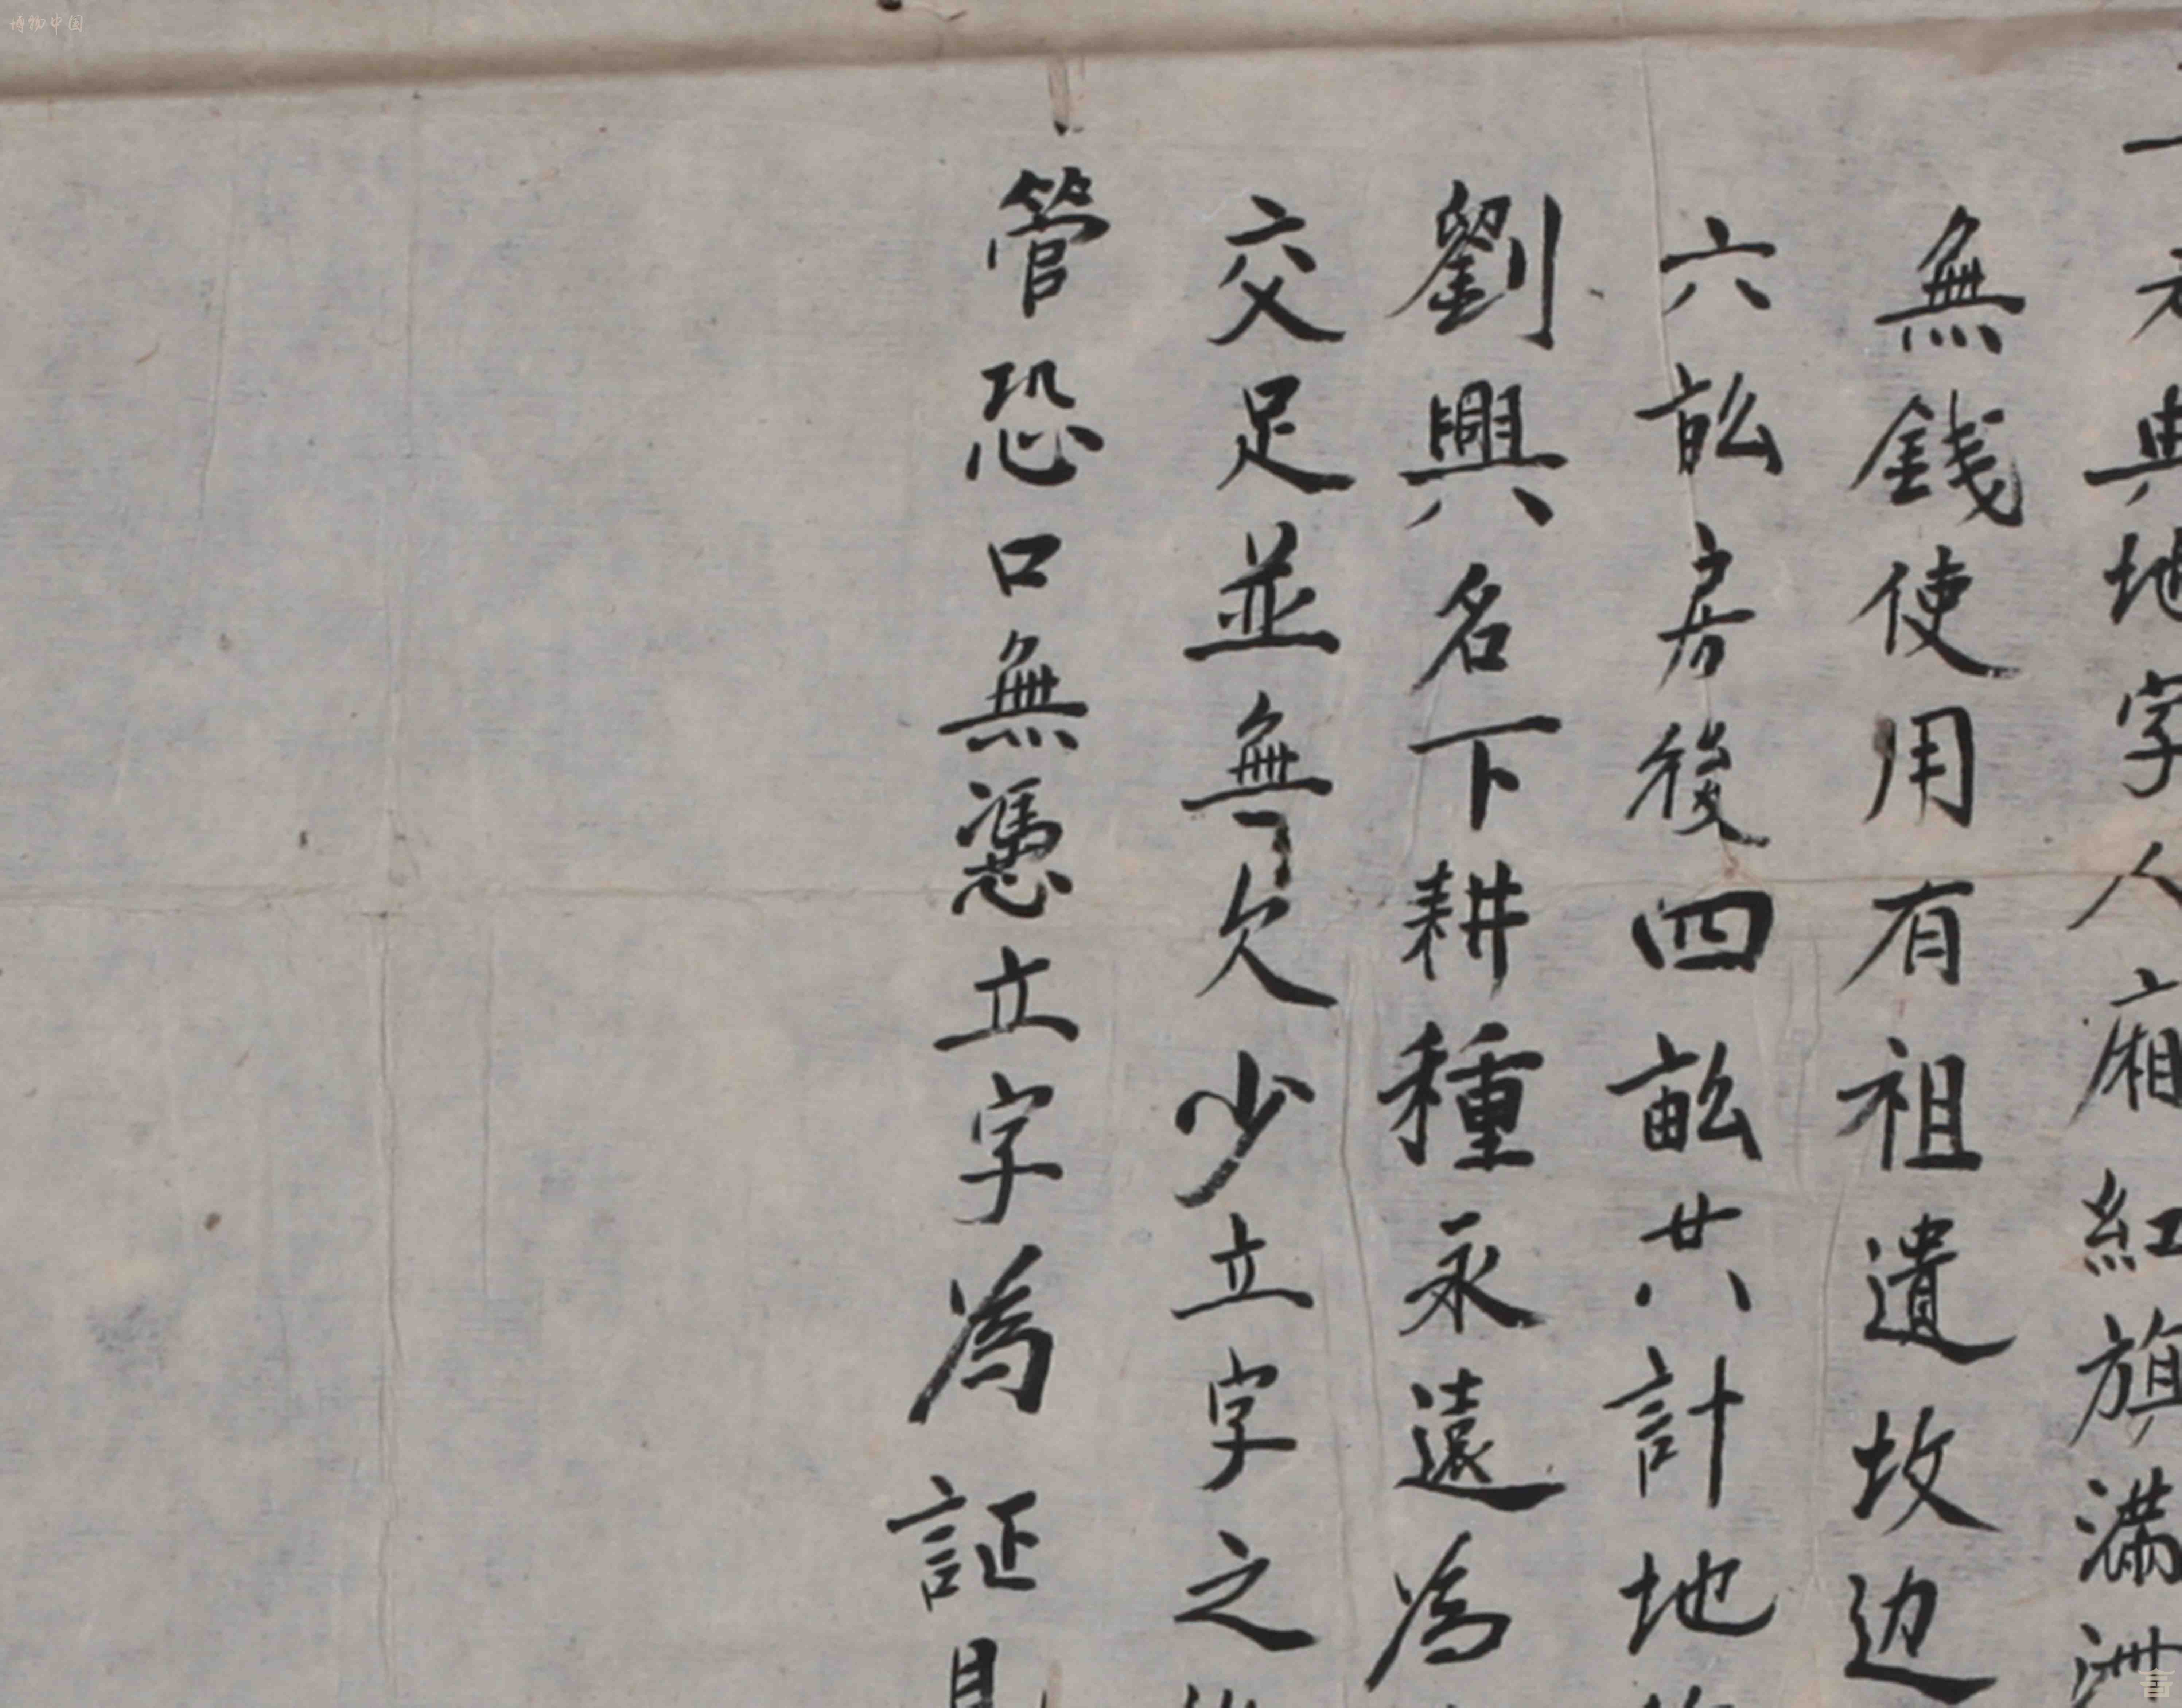 典地字人廂紅旗滿洲
無錢使用有祖遺坟边
六畝房後四畝共計地
劉興名下耕種永遠為
交足並無欠少立字之
管恐口無憑立字為証
博物中国